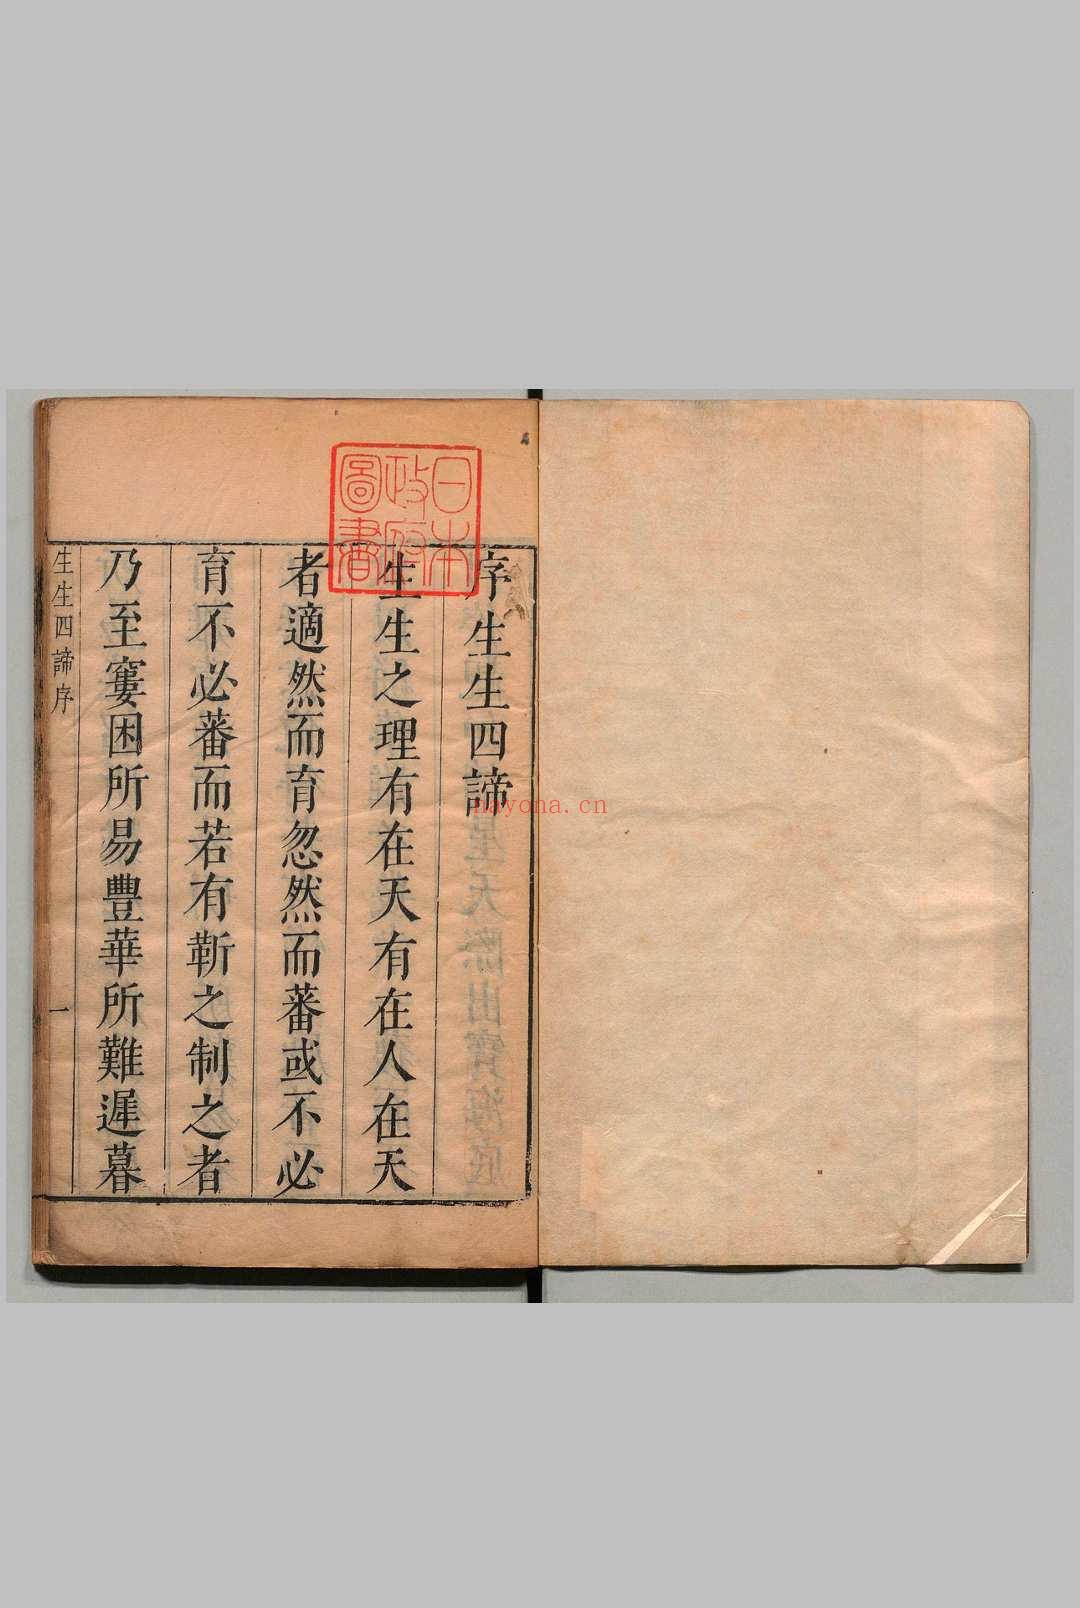 日本
政府
圖書
序生生四諦
生生之理有在天有在人在天
者適然而育忽然而蕃或不必
育不必蕃而若有靳之制之者
乃至窶困所易豐華所難遲暮
生生四諦序
一
nayona.cn